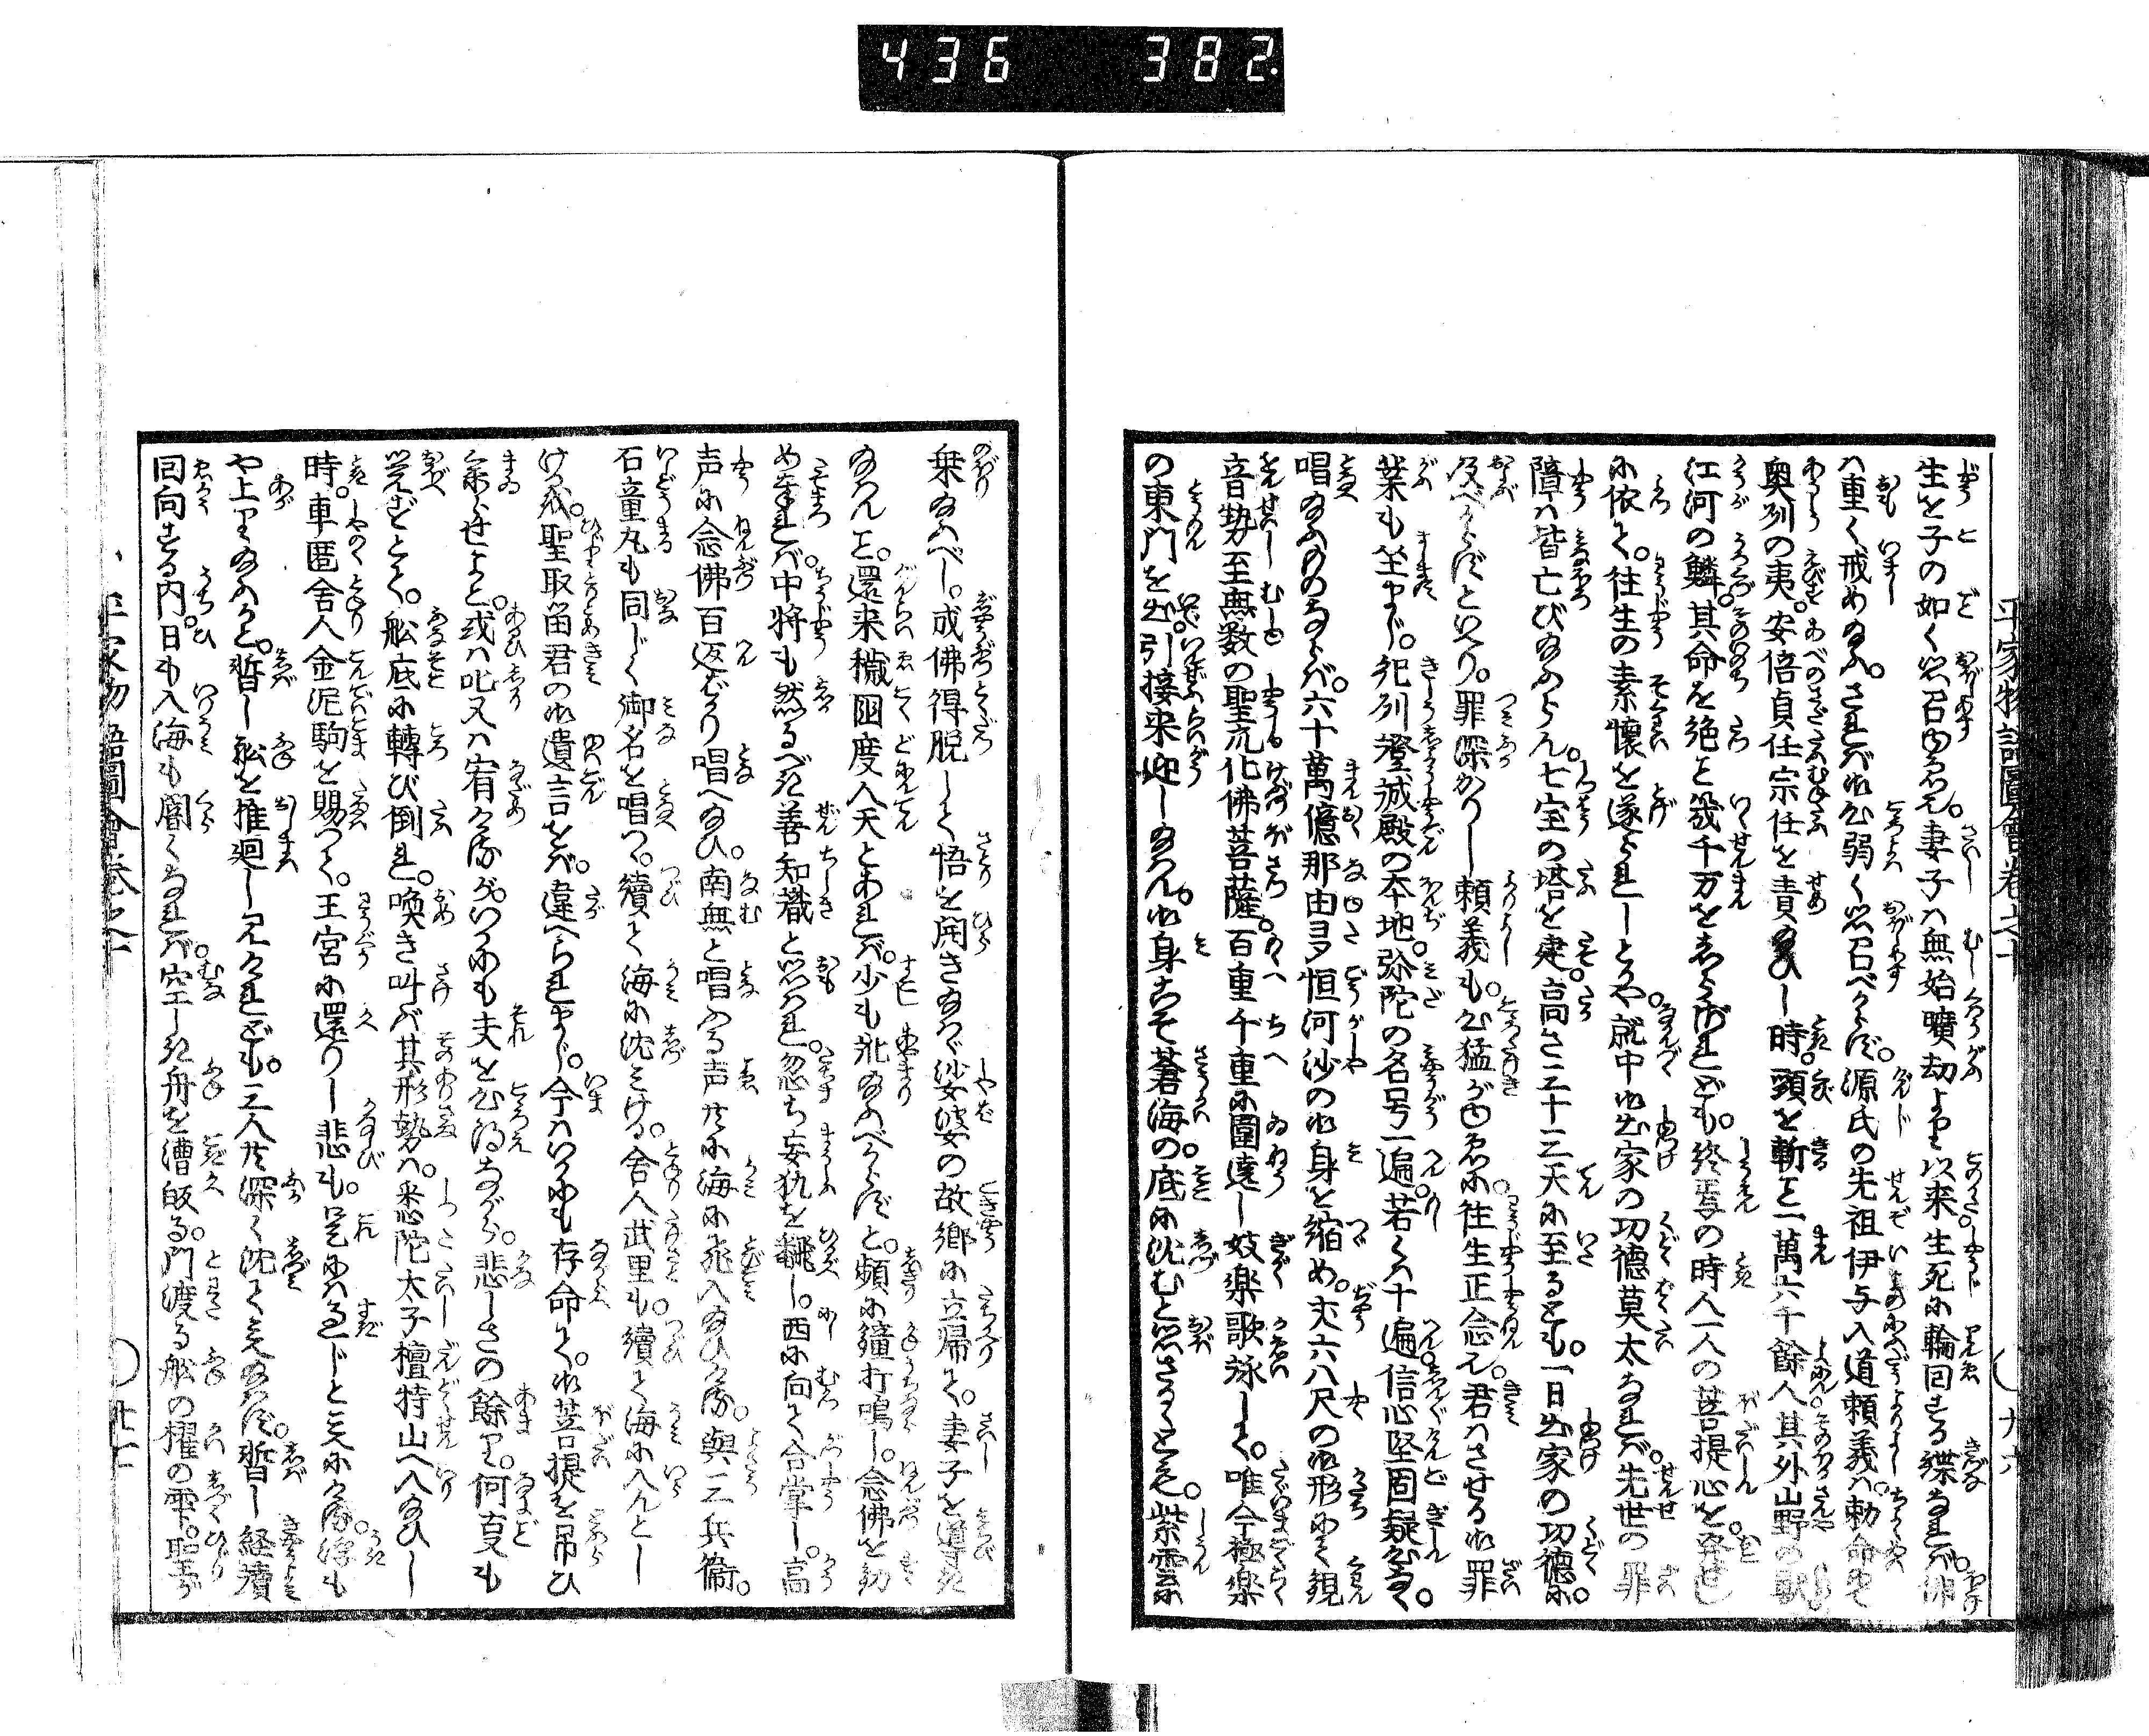 436 382
平家物語圖會巻之十
生を子の如く思召ゆゑ也。妻子ハ無始曠劫より以来生死に輪回する緤なれバ。佛
ハ重く戒め給ふ。されバ御心弱く思召べからず。源氏の先祖伊与入道頼義ハ。勅命にて
奥列の夷。安倍貞任宗任を責給ひし時。頭を斬こと一萬六千餘人其外山野の獣
江河の鱗。其命を絶こと幾千万をしらざれども。終焉の時一人の菩提心を發せし
に依て。往生の素懐を遂られしとかや。就中御出家の功徳莫太なれバ。先世の罪
障ハ皆亡び給ふらん。七宝の塔を建。高さ三十三天に至るとも。一日出家の功徳に。
及べからずといへり。罪深かりし頼義も。心猛がゆゑに往生正念也。君ハさせる御罪
業も坐まじ。紀列證誠殿の本地。弥陀の名号一遍。若くハ千遍信心堅固疑心なく。
唱給ふものならバ。六十萬億那由多恒河沙の御身を縮め。丈六八尺の御形にて観
音勢至無数の聖衆化佛菩薩。百重千重に圍遶し妓楽歌詠して。唯今極楽
の東門を出。引接来迎し給はん。御身こそ蒼海の。底に沈むと思さるゝとも。紫雲に
乗給ふべし。成佛得脱して悟を開き給はゞ娑婆の故郷に立帰て。妻子を導き
給はん事。還来穢国度人天とあれバ。少も紕給ふべからずと。頻に鐘打鳴し。念佛を勧
め奉れバ。中将も然るべき善知識と思はれ。忽ち妄執を飜し。西に向て合掌し。高
声に念佛百返ばかり唱へ給ひ。南無と唱ふる声共に海に飛入給ひける。與三兵衞。
石童丸も同じく御名を唱つゝ。續て海に沈みける。舎人武里も。續て海に入んとし
けるを。聖取留君の御遺言をバ。違へられまじ。今ハいかにも存命て。御菩提を吊ひ
参らせよと。或ハ叱又ハ宥けるが。いかにも夫を心得ながら。悲しさの餘り。何事も
覚ざとて。舩底に轉び倒れ。喚き叫バ其形勢ハ。悉陀太子檀特山へ入給ひし
時。車匿舎人金泥駒を賜つて。王宮に還りし悲も。是にハ過じと見にける。浮も
や上り給ふかと。暫し舩を推廻し見けれども。三人共深く沈て見給はず。暫し経讀
回向する内。日も入海も闇くなれバ。空しき舟を漕皈る。門渡る舩の櫂の雫。聖が